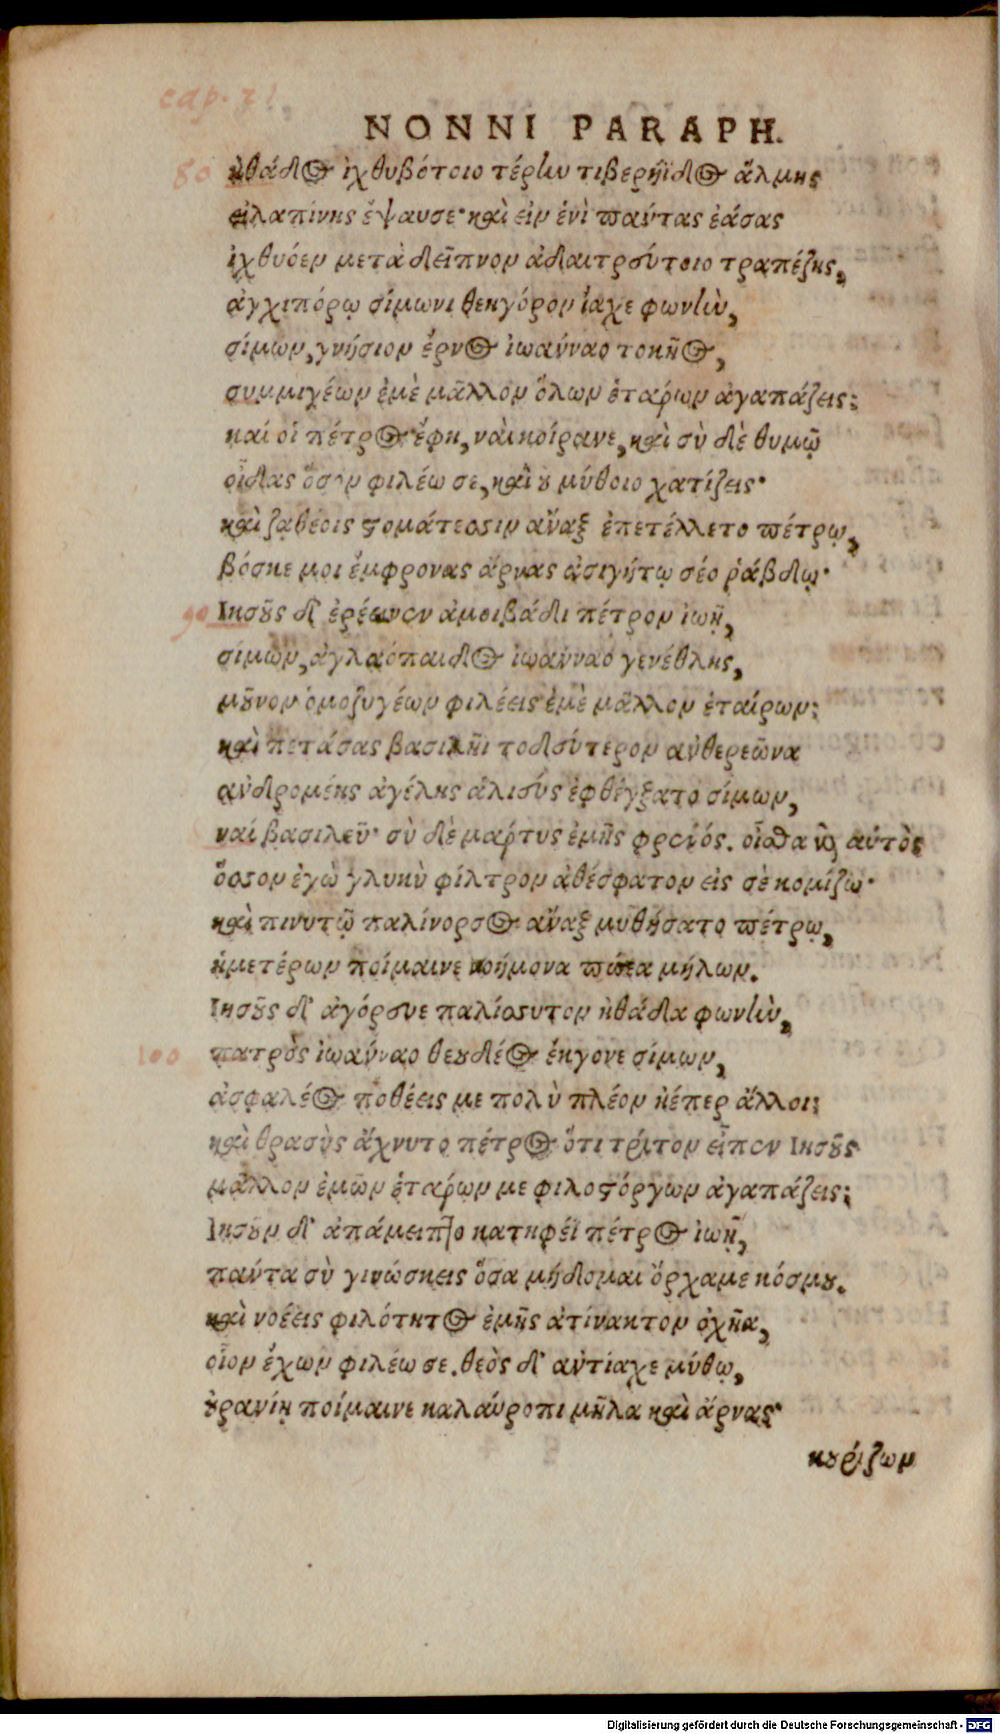 cap. 21.
NONNI PARAPH.
80 ἠθάδος ἰχθυβότοιο τέρην τιβερηΐδος ἅλμης
εἰλαπίνης ἔψαυσε· καὶ εἰν ἑνὶ πάντας ἐάσας
ἰχθυόεν μετὰ δεῖπνον ἀδαιτρεύτοιο τραπέζης,
ἀγχιπόρῳ σίμωνι θεηγόρον ἴαχε φωνὴν,
σίμων, γνήσιον ἔρνος ἰωάνναο τοκῆος,
συμμιγέων ἐμὲ μᾶλλον ὅλων ἑτάρων ἀγαπάζεις;
καί οἱ πέτρος ἔφη, ναὶ κοίρανε, καὶ σὺ δὲ θυμῷ
οἶδας ὅσον φιλέω σε, καὶ ȣ μύθοιο χατίζεις·
καὶ ζαθέοις ϛομάτεσσιν ἄναξ ἐπετέλλετο πέτρῳ,
βόσκε μοι ἔμφρονας ἄρνας ἀσιγήτῳ σέο ῥάβδῳ·
90 Ιησȣ͂ς δ' ἐρέεινεν ἀμοιβάδι πέτρον ἰωῇ,
σίμων, ἀγλαόπαιδος ἰωάνναο γενέθλης,
μȣ͂νον ὁμοζυγέων φιλέεις ἐμὲ μᾶλλον ἑταίρων;
καὶ πετάσας βασιλῆϊ τοδεύτερον ἀνθερεῶνα
ἀνδρομέης ἀγέλης ἁλιεύς ἐφθέγξατο σίμων,
ναί βασιλεῦ· σὺ δὲ μάρτυς ἐμῆς φρενός. οἶσθα καὶ αὐτὸς
ὅσσον ἐγὼ γλυκὺ φίλτρον ἀθέσφατον εἰς σὲ κομίζω·
καὶ πινυτῷ παλίνορσος ἄναξ μυθήσατο πέτρῳ,
ἡμετέρων ποίμαινε νοήμονα πώεα μήλων.
Ιησȣ͂ς δ' ἀγόρευε παλίσσυτον ἠθάδα φωνὴν,
100 πατρὸς ἰωάνναο θεȣδέος ἔκγονε σίμων,
ἀσφαλέος ποθέεις με πολὺ πλέον ἠέπερ ἄλλοι;
καὶ θρασὺς ἄχνυτο πέτρος ὅτι τρίτον εἶπεν Ιησȣ͂ς
μᾶλλον ἐμῶν ἑτάρων με φιλοϛόργων ἀγαπάζεις;
Ιησȣ͂ν δ' ἀπάμειπτο κατηφέϊ πέτρος ἰωῇ,
πάντα σὺ γινώσκεις ὅσα μήδομαι ὄρχαμε κόσμȣ.
καὶ νοέεις φιλότητος ἐμῆς ἀτίνακτον ὀχῆα,
οἷον ἔχων φιλέω σε. θεὸς δ' ἀντίαχε μύθῳ,
ȣ̓ρανίῃ ποίμαινε καλαύροπι μῆλα καὶ ἄρνας·
κȣρίζων
Digitalisierung gefördert durch die Deutsche Forschungsgemeinschaft - DFG